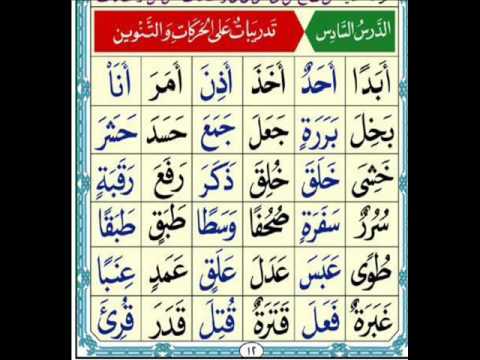 الدَّرْسُ السَّادِسُ تَدْرِيبَاتٌ عَلَى الْحَرَكَاتِ وَالتَّنْوِينِ
أَبَدًا أَحَدٌ أَخَذَ أَذِنَ أَمَرَ أَنَا۠
بَخِلَ بَرَرَةٍ جَعَلَ جَمَعَ حَسَدَ حَشَرَ
خَشِىَ خَلَقَ خُلِقَ ذَكَرَ رَفَعَ رَقَبَةٍ
سُرُرٌ سَفَرَةٍ صُحُفًا وَسَطًا طَبَقٍ طَبَقًا
طُوًى عَبَسَ عَدَلَ عَلَقٍ عَمَدٍ عِنَبًا
غَبَرَةٌ فَعَلَ قَتَرَةٌ قُتِلَ قَدَرَ قُرِئَ
١٢